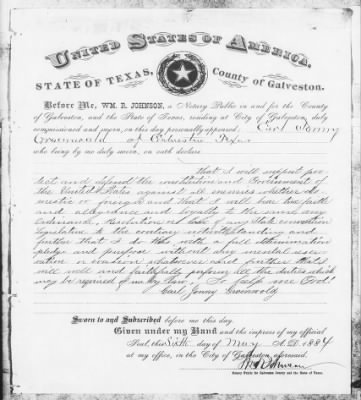 UNITED STATES OF AMERICA,
STATE OF TEXAS, County of Galveston.
Before Me, WM. R. JOHNSON, a Notary Public in and for the County
of Galveston, and the State of Texas, residing at City of Galveston, duly
commissioned and sworn, on this day personally appeared, Carl
of Galveston Texas
who being by me duly sworn, on oath declare
that I will support pro-
tect and defend the constitution and Government of
the United States against all enemies whether do-
mestic or foreign and that I will bear true faith
and allegiance and loyalty to the same any
ordinance, Resolution or law of any State convention or
Legislature to the contrary notwithstanding and
further that I do this with a full determination
pledge and purpose without any mental reser-
vation or evasion whatsoever and further that I
will well and faithfully perform all the duties which
may be required of me by law. So help me God!
Carl
Sworn to and Subscribed before me this day.
Given under my Hand and the impress of my official
Seal, this Sixth day of May A.D. 1884
at my office, in the City of Galveston, aforesaid.
Wm R Johnson
Notary Public for Galveston County and the State of Texas.